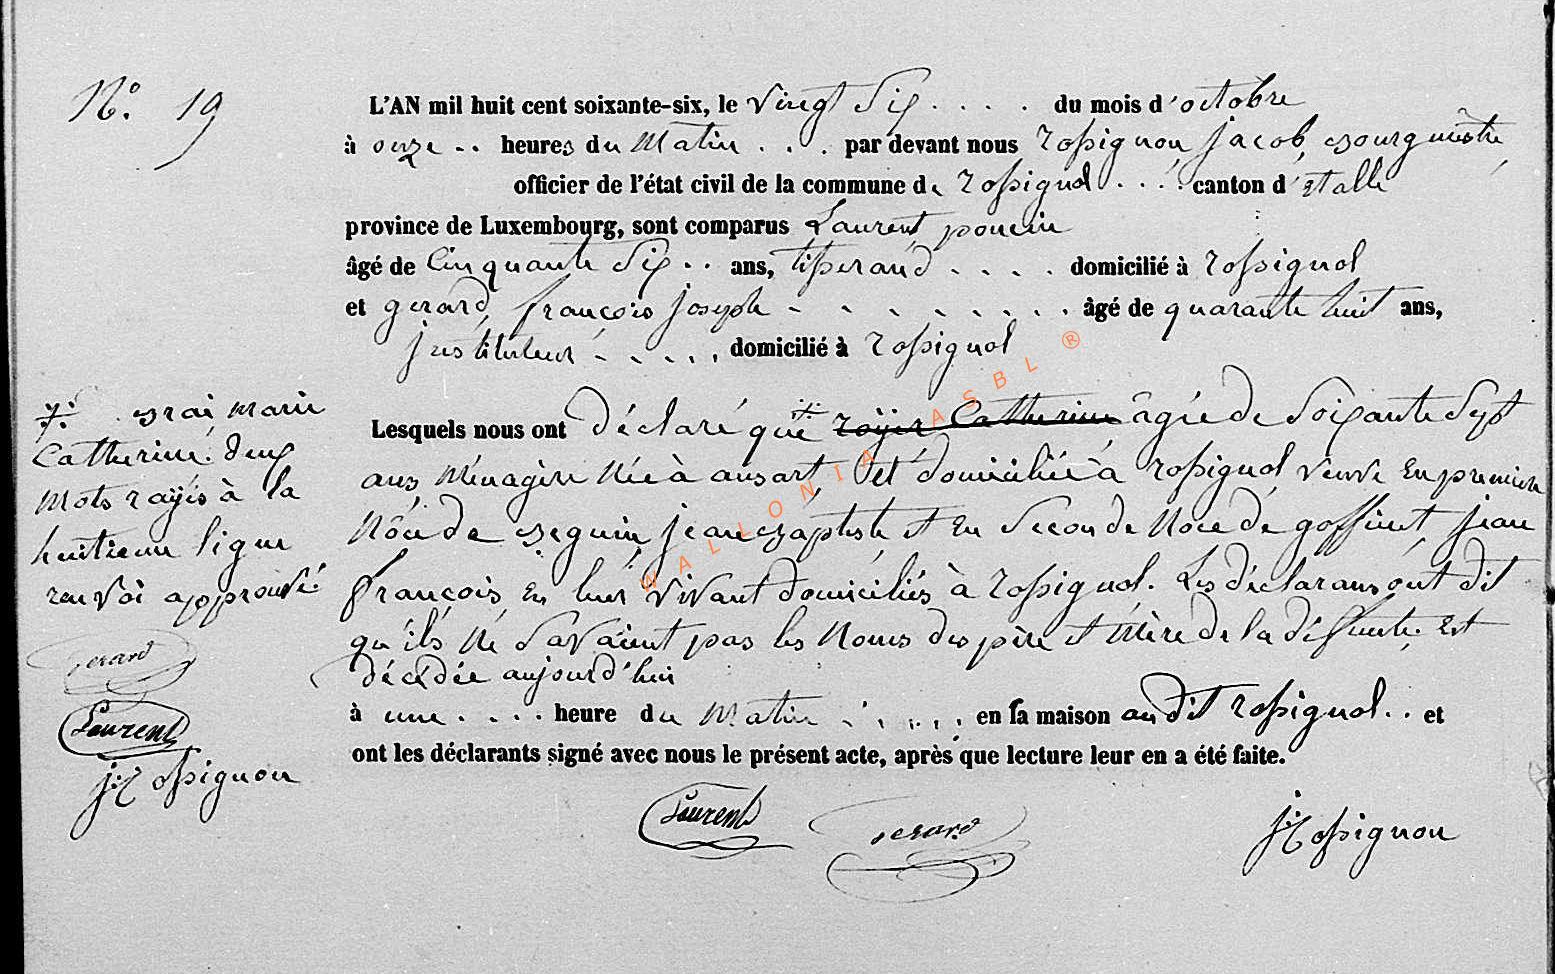 N° 19
L'AN mil huit cent soixante-six, le vingt six . . . . du mois d'octobre
à onze . . heures du matin . . . par devant nous rossignon jacob, bourgmestre,
officier de l'état civil de la commune de rossignol . . . . canton d'etalle
province de Luxembourg, sont comparus Laurent poncin
âgé de cinquante six . . ans, tisserand . . . . domicilié à rossignol
et gerard, françois joseph - - - - - - - . âgé de quarante huit ans,
instituteur - - . . . domicilié à rossignol
Lesquels nous ont déclaré que royer Catherine âgée de soixante sept
ans, ménagère née à ansart, et domiciliée à rossignol veuve en premiere
nôce de seguin, jean baptiste et en seconde noce de goffinet, jean
françois, en leur vivant domiciliés à rossignol. Les déclarans ont dit
qu'ils ne savaient pas les noms des père et mère de la défunte, est
décédée aujourd'hui
à une . . . . heure du matin . . . . . en sa maison audit rossignol . . et
ont les déclarants signé avec nous le présent acte, après que lecture leur en a été faite.
Laurent gerard j: rossignon
marie
catherine. deux
mots rayés à la
huitieme ligne
renvoi approuvé
gerard
Laurent
j: rossignon
WALLONIA ASBL ®